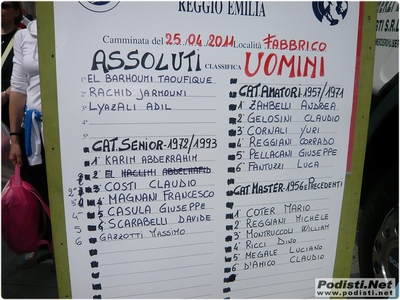 REGGIO EMILIA
Camminata del 25.04.2011 Località FABBRICO
ASSOLUTI CLASSIFICA UOMINI
1° EL BARHOUMI TAOUFIQUE
2° RACHID JARMOUNI
3° LYAZALI ADIL
4°
5°
CAT. SENIOR-1972/1993
1° KARIM ABDERRAHIM
2° EL HACLIMI ABDELHAFID
3° COSTI CLAUDIO
4° MAGNANI FRANCESCO
5° CASULA GIUSEPPE
6° SCARABELLI DAVIDE
6 GAZZOTTI MASSIMO
CAT. AMATORI-1957/1971
1° ZAMBELLI ANDREA
2° GELOSINI CLAUDIO
3° CORNALI YURI
4° REGGIANI CORRADO
5° PELLACANI GIUSEPPE
6° FANTUZZI LUCA
CAT MASTER-1956 e PRECEDENTI
1° COTER MARIO
2° REGGIANI MICHELE
3° MONTRUCCOLI WILLIAM
4° RICCI DINO
5° MEGALE LUCIANO
6° D'AMICO CLAUDIO
Podisti.Net
www.podisti.net